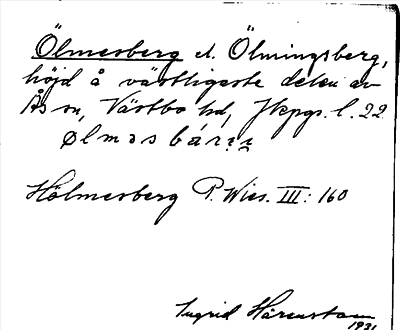 Ölmesberg el. Ölmingsberg,
höjd å västligaste delen av
Ås sn, Västbo hd, Jkpgs. l. 22
ølməsbárʒ
Hölmesberg P. Wies. III: 160
Ingrid Hårenstam
1931